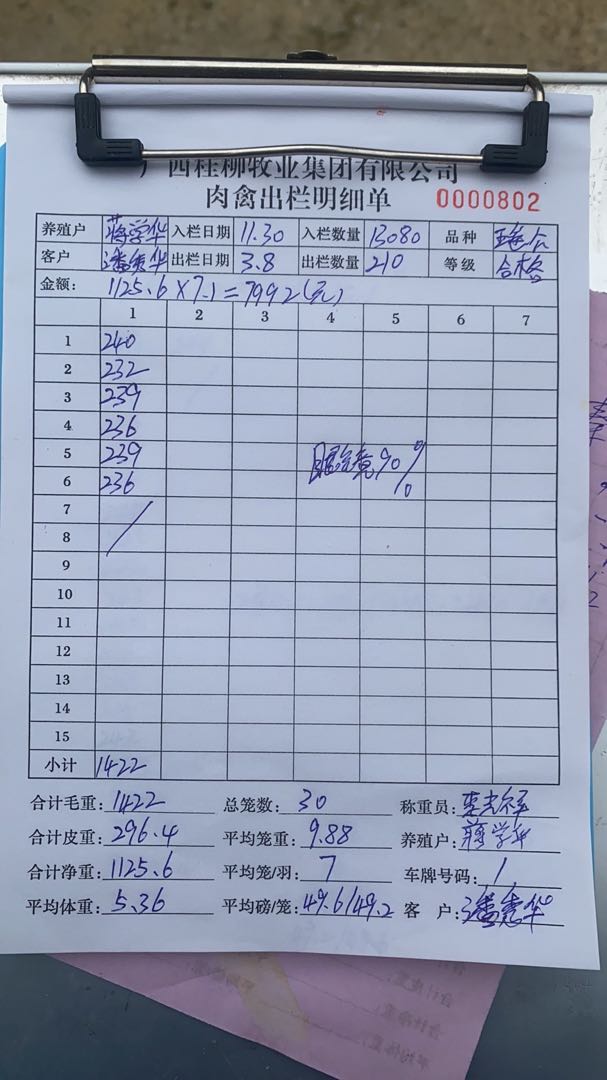 广西桂柳牧业集团有限公司
肉禽出栏明细单 0000802
养殖户 蒋学华 入栏日期 11.30 入栏数量 13080 品种
客户 出栏日期 3.8 出栏数量 210 等级 合格
金额: 1125.6×7.1=7992(元)
1 2 3 4 5 6 7
1 240
2 232
3 239
4 236
5 239
6 236
7
8
9
10
11
12
13
14
15
小计 1422
合计毛重: 1422 总笼数: 30 称重员:
合计皮重: 296.4 平均笼重: 9.88 养殖户: 蒋学华
合计净重: 1125.6 平均笼/羽: 7 车牌号码: 1
平均体重: 5.36 平均磅/笼: 49.6/49.2 客 户: